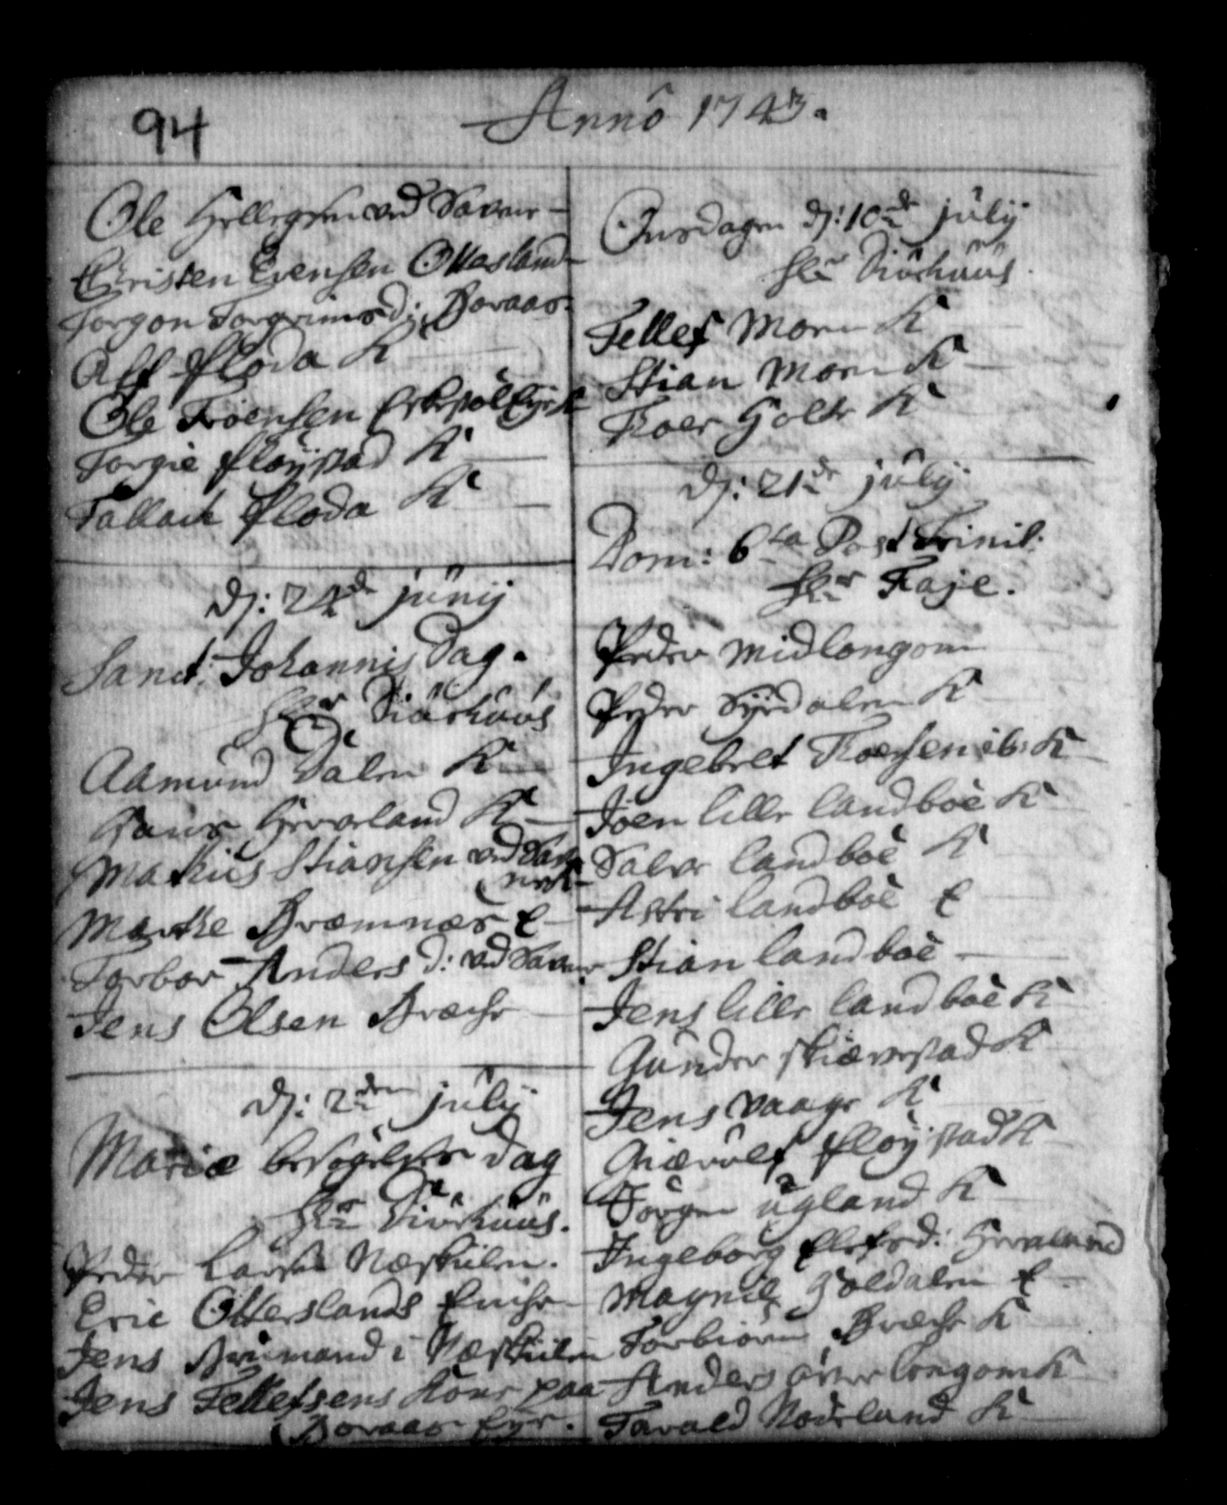 94
Anno 1743.
Ole Hellegsen ved Savner
Christen Evensen Ottasland
Torgon Torgrimsd: Boraas.
Alf Floda K
Ole Troensen
Torgie Fløystad K
Tallack Floda K
dj: 24de junij
Sanct: Johannis Dag.
Hr Siurhuus
Aamund Dalen K
Hans Herreland K
Mathis Stiansen ved
Marthe Bræmnæs E
Torbor Anders d: ved Savner
Jens Olsen Bræche
dj: 2den julij
Mariæ besøgelses Dag
Hr Siurhuus.
Peder Larsen Næskilen.
Eric Otterslands Enche
Jens Brimand i Næskilen
Jens Tellefsens Kone paa
Boraas Eye.
Onsdagen dj: 10de julij
Hr Siurhuus.
Tellef Moen K
Stian Moen K
Roer Holte K
dj: 21de julij
Dom: 6ta Post Trinit:
Hr Faje.
Peder Midlongom
Peder Syrdalen K
Ingebret Roersen ib: K
Joen lille landboe K
Salve landboe K
Astri landboe E
Stian landboe
Jens lille landboe K
Gunder skiævestad K
Jens Vaage K
Giærulf Fløystad K
Jørgen ugland K
Ingeborg Elefsd: Herreland
Magnil Holdalen E
Torbiørn Bræche K
Anders øver longom K
Tarald Noveland K